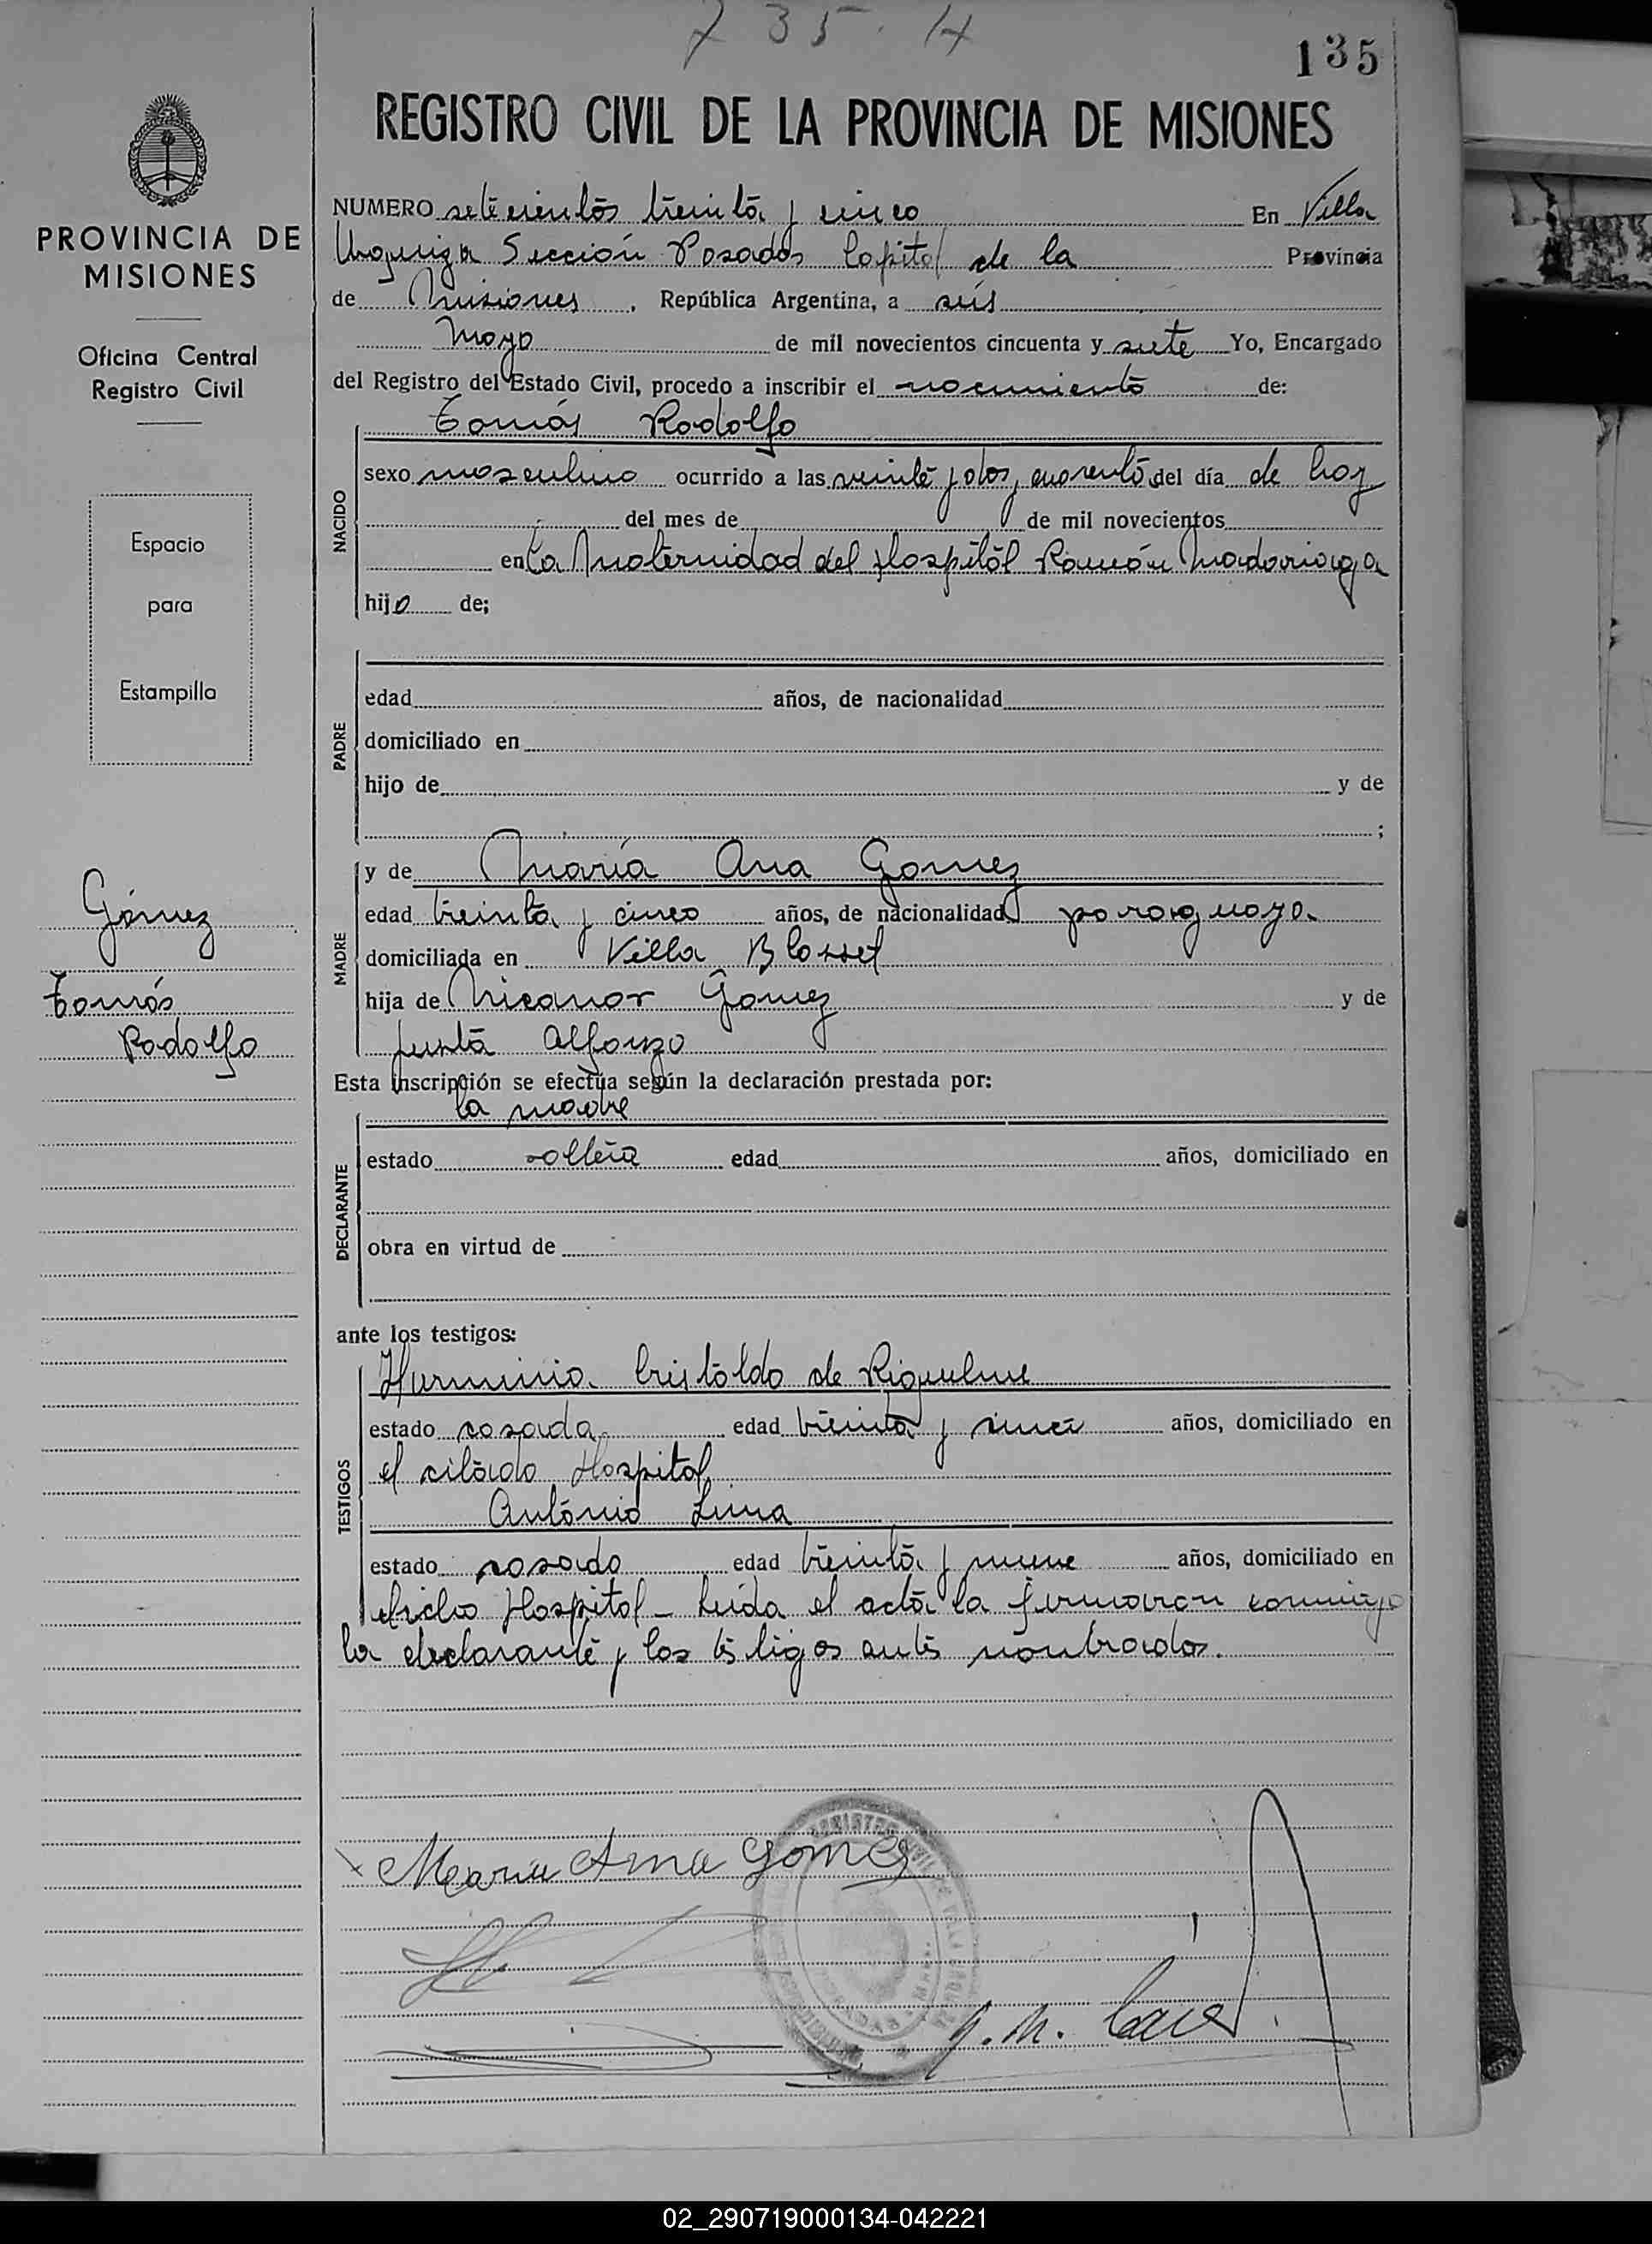 735. H
135
REGISTRO CIVIL DE LA PROVINCIA DE MISIONES
PROVINCIA DE
MISIONES
Oficina Central
Registro Civil
Espacio
para
Estampilla
Gómez
Tomás
Rodolfo
NUMERO setecientos treinta y cinco En Villa
Urquiza Sección Posadas Capital de la Provincia
de Misiones, República Argentina, a seis
Mayo de mil novecientos cincuenta y siete Yo, Encargado
del Registro del Estado Civil, procedo a inscribir el nacimiento de:
Tomás Rodolfo
NACIDO
sexo masculino ocurrido a las veinte y dos, cuarenta del día de hoy
del mes de de mil novecientos
en la Maternidad del Hospital Ramón Madariaga
hijo de;
PADRE
edad años, de nacionalidad
domiciliado en
hijo de y de
;
MADRE
y de María Ana Gomez
edad treinta y cinco años, de nacionalidad paraguaya
domiciliada en Villa Blosset
hija de Nicanor Gomez y de
Justa Alfonzo
Esta inscripción se efectúa según la declaración prestada por:
la madre
DECLARANTE
estado soltera edad años, domiciliado en
obra en virtud de
ante los testigos:
TESTIGOS
Herminia Cristaldo de Riquelme
estado casada edad treinta y cinco años, domiciliado en
el citado Hospital
Antonio Luna
estado casado edad treinta y nueve años, domiciliado en
dicho Hospital - Leída el acta la firmaron conmigo
la declarante y los testigos antes nombrados.
Maria Ana Gomez
02_290719000134-042221